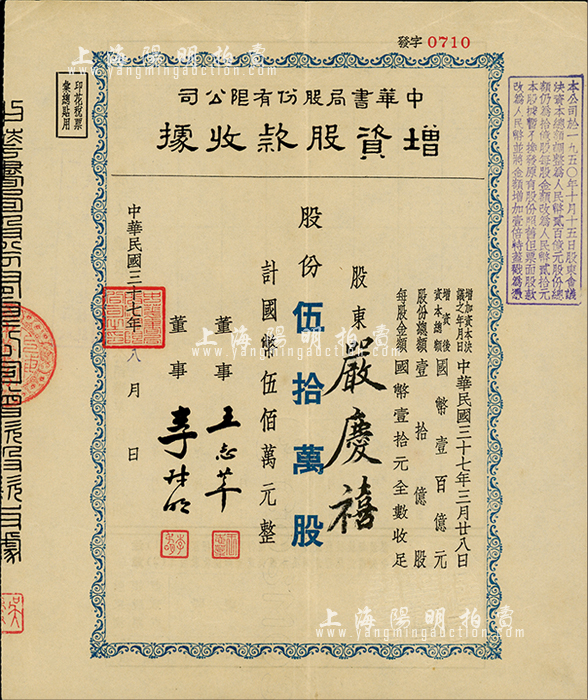 發字 0710
上海陽明拍賣
www.yangmingauction.com
中華書局股份有限公司
增資股款收據
印花稅票
彙總貼用
本公司於一九五〇年十月十五日股東會議
決資本總額調整為人民幣貳百億元股份總
額仍為拾億股每股金額改為人民幣貳拾元
本股據暫不換發原有股份照舊但票面股款
改為人民幣並將金額增加壹倍特蓋戳為憑
增加資本決議之年月日 中華民國三十七年三月廿八日
增資後資本總額 國幣壹百億元
股份總額 壹拾億股
每股金額 國幣壹拾元全數收足
股東 嚴慶禧
股份 伍拾萬股
計國幣伍佰萬元整
董事
董事
中華民國三十七年八月 日
上海陽明拍賣
www.yangmingauction.com
上海陽明拍賣
www.yangmingauction.com